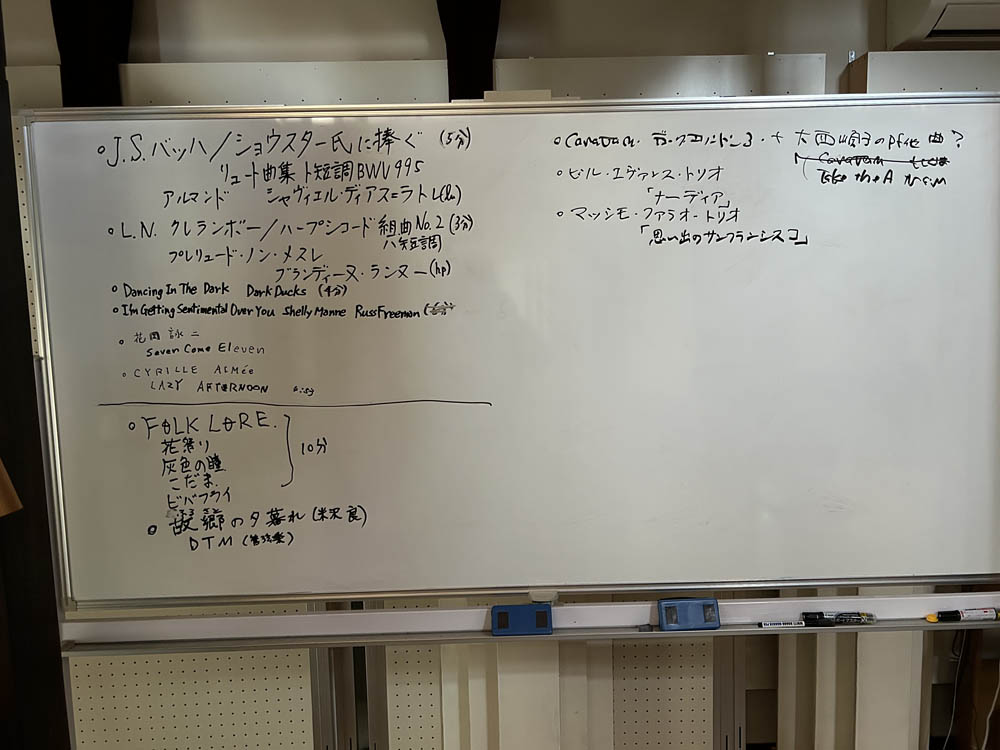 ○J.S.バッハ/ショウスター氏に捧ぐ (5分)
リュート曲集 ト短調BWV995
アルマンド シャヴィエル・ディアス=ラトレ(lu)
○L.N. クレランボー/ハープシコード 組曲No.2 (3分)
ハ短調
プレリュード・ノン・メスレ
ブランディーヌ・ランヌー(hp)
○Dancing In The Dark Dark Ducks (4分)
○I'm Getting Sentimental Over You Shelly Manne Russ Freeman
○花岡詠二
Seven Come Eleven
○CYRILLE AIMée
LAZY AFTERNOON
○FOLK LORE.
花祭り
灰色の瞳
こだま
ビバフライ
10分
○故郷の夕暮れ (米沢良)
ふるさと
DTM (管弦楽)
○Caravan 大西順子のpf他 曲?
Caravan
Take the A Train
○ビル・エヴァンス・トリオ
「ナーディア」
○マッシモ・ファラオ・トリオ
「思い出のサンフランシスコ」